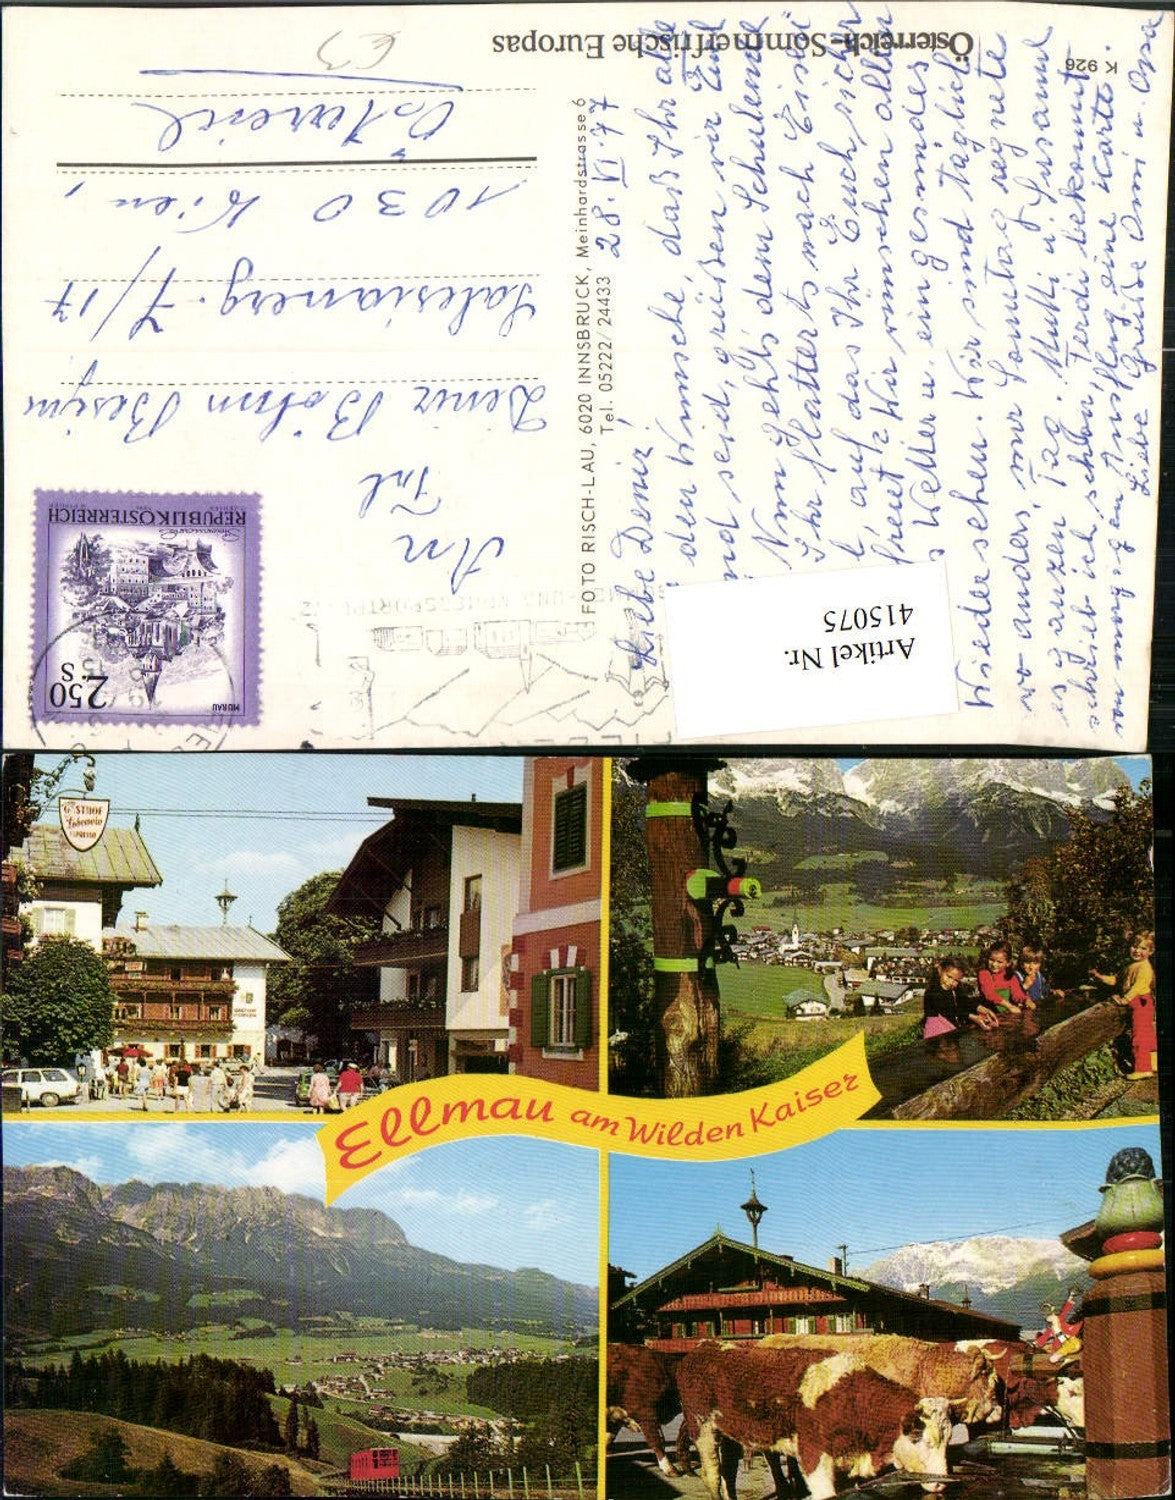 Österreich-Sommerfrische Europas
K 926
FOTO RISCH-LAU, 6020 INNSBRUCK, Meinhardstrasse 6
Tel. 05222/24433
28. VI. 77
Liebe Deniz!
den Wunsche, daß Ihr alle
seid, grüßen wir Euch
Nun geht's dem Schulende
Ihr flattert's nach
auf das Ihr Euch sicher
freut. Wir wünschen alles
Wetter u. ein gesundes
Wiedersehen. Wir sind täglich
wo anders, nur Sonntag regnete
es ganzen Tag. Mutti u. Susanne
schrieb ich schon, Ferdi bekommt
von morgigen Ausflug eine Karte.
Liebe Grüße Omi u. Opa
An
Frl.
Deniz Böhm
Salesianerg. 7/17
1030 Wien,
Österreich
REPUBLIK ÖSTERREICH
2.50
S
MURAU
Artikel Nr.
415075
GASTHOF
Ellmau am Wilden Kaiser